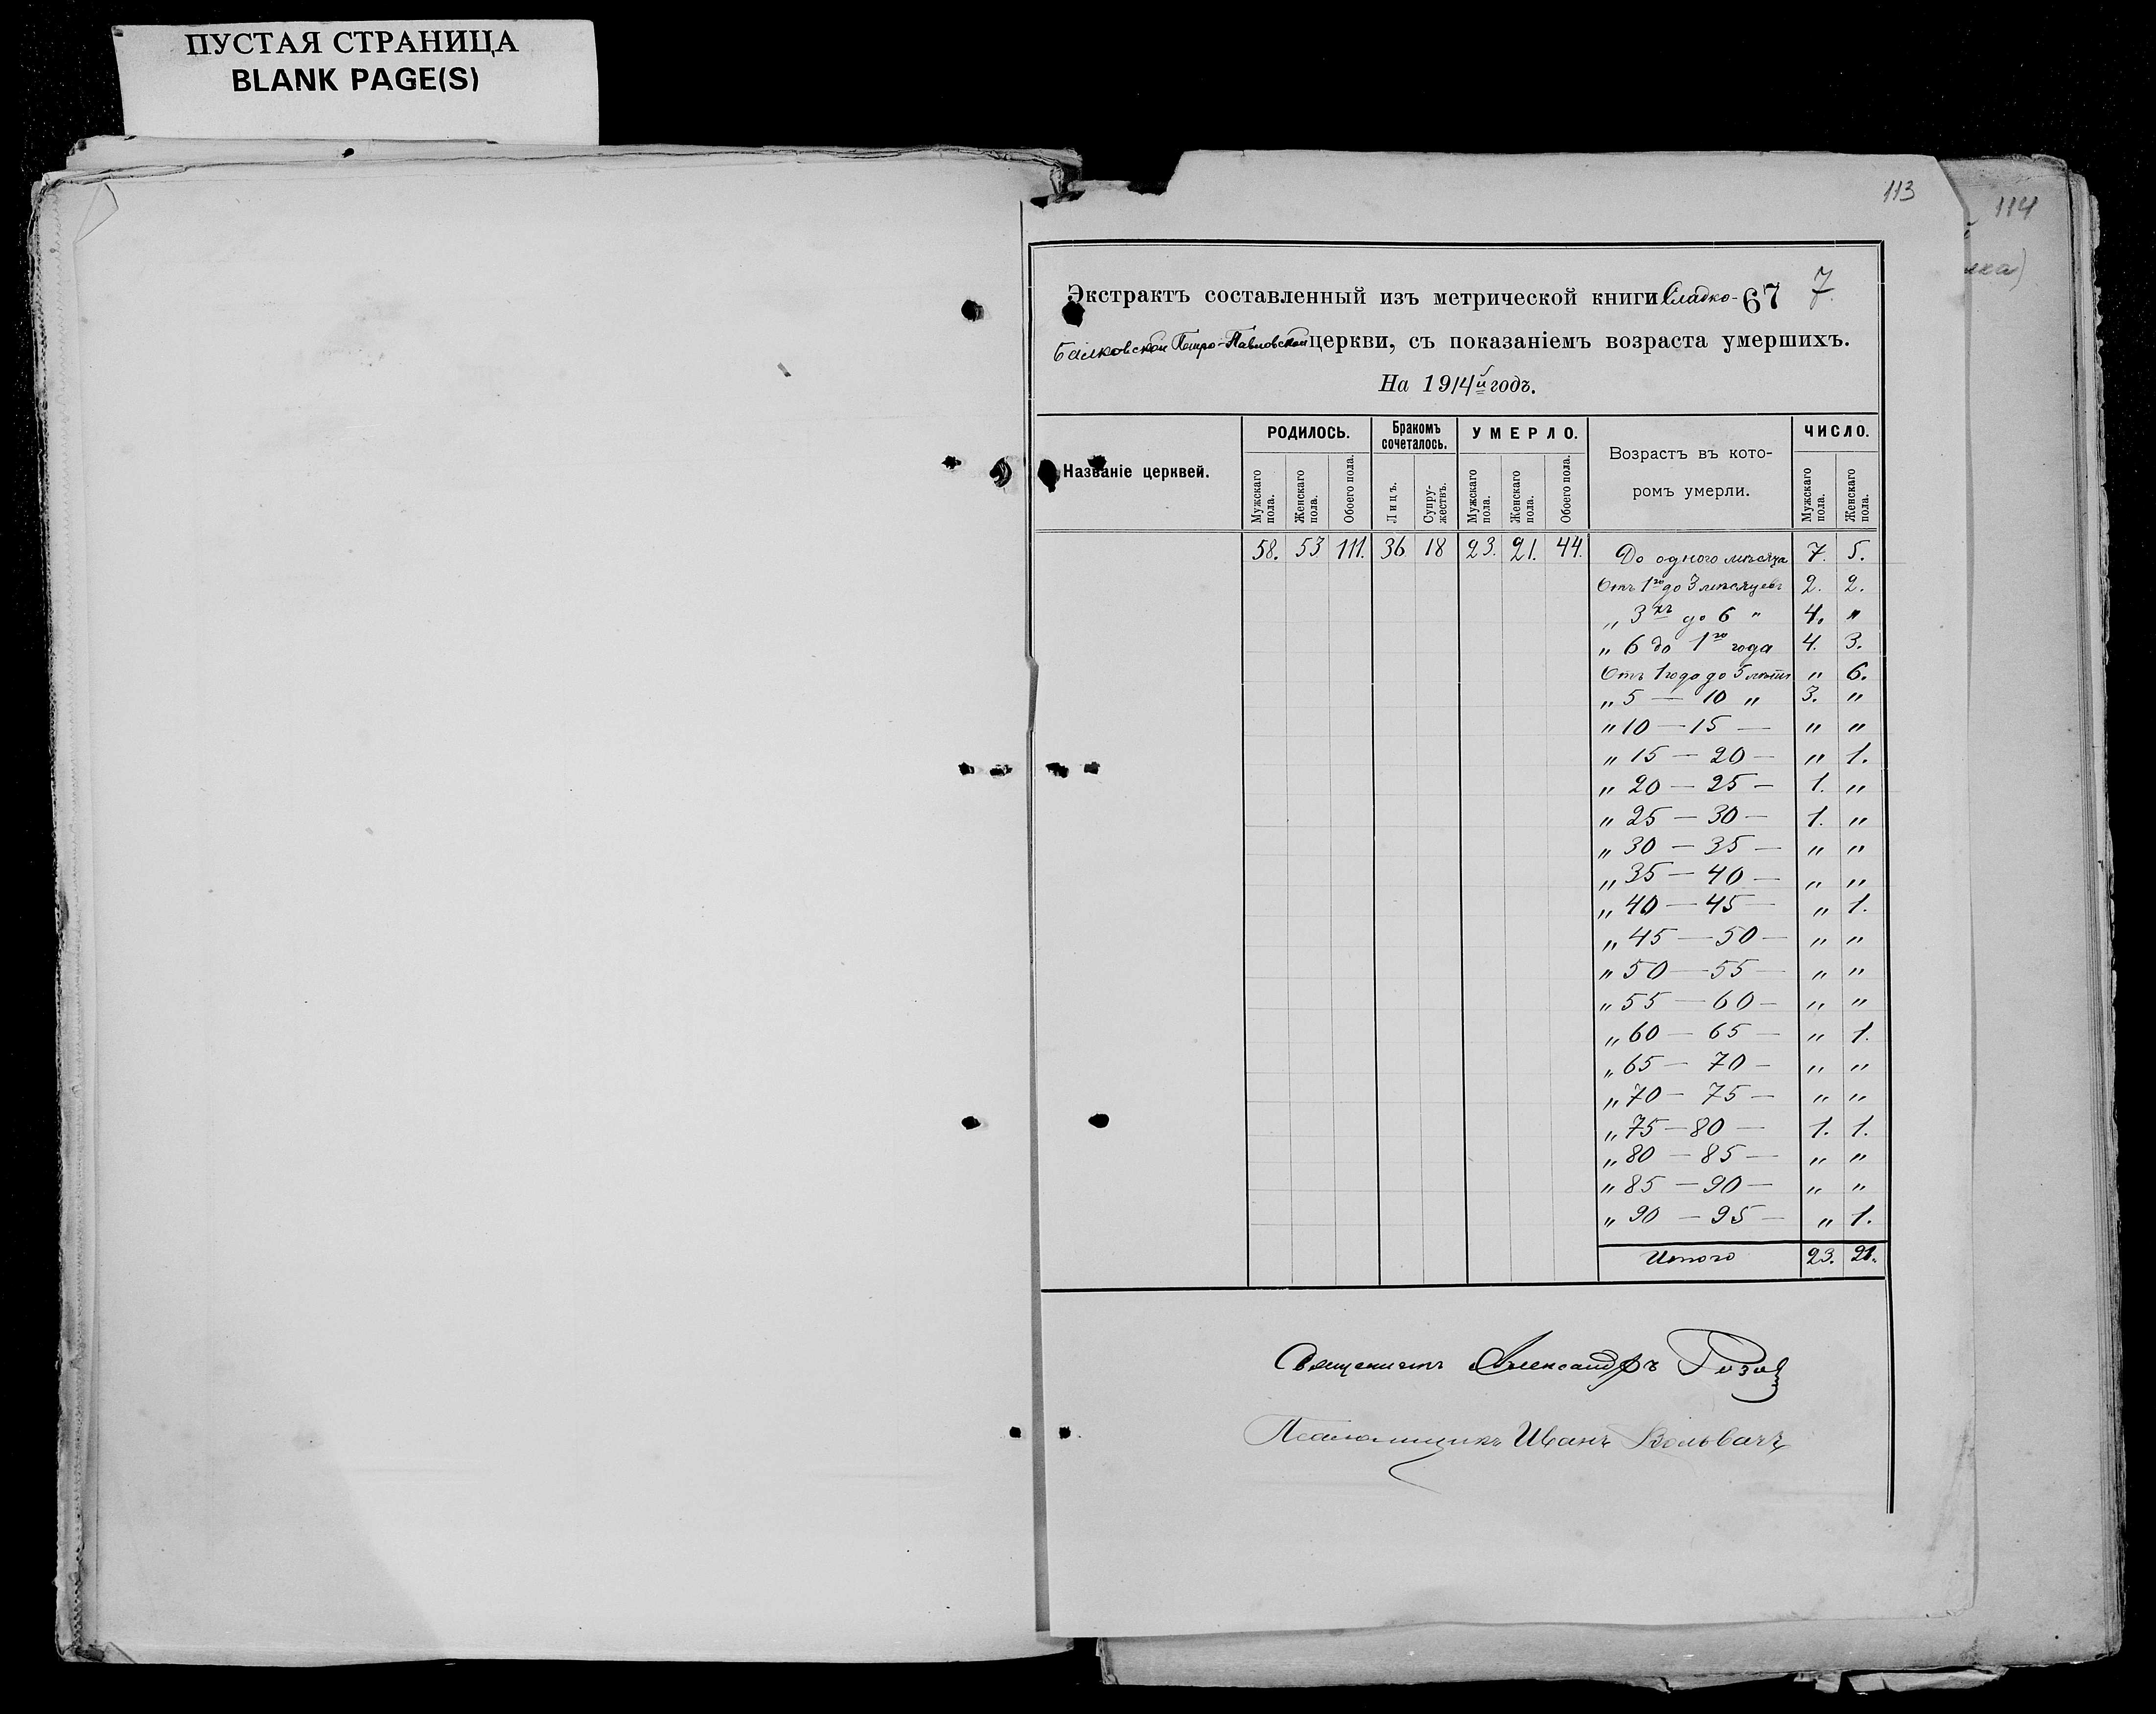 ПУСТАЯ СТРАНИЦА
BLANK PAGE(S)
113
114
Экстрактъ составленный изъ метрической книги Сладко- 67 7
Балковской Петро-Павловской церкви, съ показаніемъ возраста умершихъ.
На 1914й годъ.
Названіе церквей. РОДИЛОСЬ. Бракомъ сочеталось. УМЕРЛО. Возрастъ въ кото- ромъ умерли. ЧИСЛО.
Мужскаго пола. Женскаго пола. Обоего пола. Лицъ. Супру- жествъ. Мужскаго пола. Женскаго пола. Обоего пола. Мужскаго пола. Женскаго пола.
58. 53 111. 36 18 23. 21. 44. До одного мѣсяца 7. 5.
Отъ 1го до 3 мѣсяцевъ 2. 2.
„ 3хъ до 6 „ 4. „
„ 6 до 1го года 4. 3.
Отъ 1 года до 5 лѣтъ „ 6.
„ 5 — 10 „ 3. „
„ 10 — 15 — „ „
„ 15 — 20 — „ 1.
„ 20 — 25 — 1. „
„ 25 — 30 — 1. „
„ 30 — 35 — „ „
„ 35 — 40 — „ „
„ 40 — 45 — „ 1.
„ 45 — 50 — „ „
„ 50 — 55 — „ „
„ 55 — 60 — „ „
„ 60 — 65 — „ 1.
„ 65 — 70 — „ „
„ 70 — 75 — „ „
„ 75 — 80 — 1. 1.
„ 80 — 85 — „ „
„ 85 — 90 — „ „
„ 90 — 95 — „ 1.
Итого 23. 21.
Священникъ Александръ Розов
Псаломщикъ Иванъ Вольвачъ